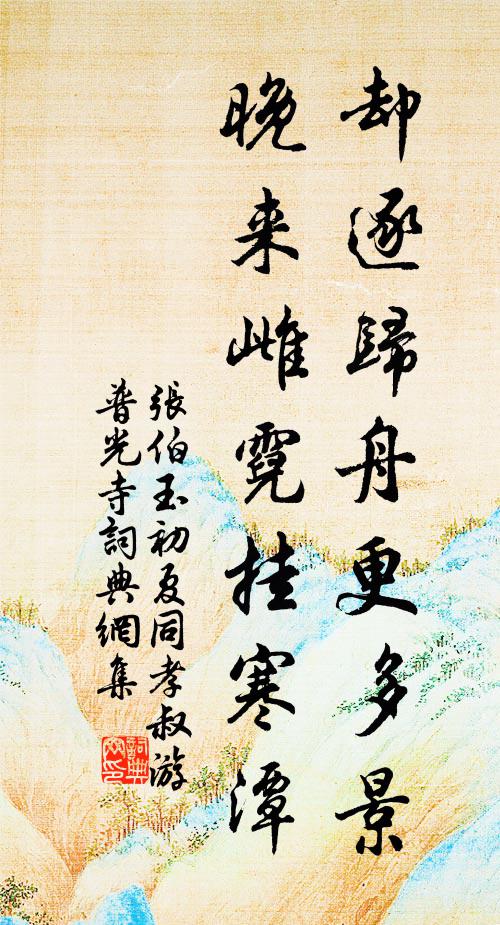 却逐歸舟更多景
晚来雌霓挂寒潭
張伯玉初夏同孝叔游
普光寺詞典網集
詞典
網印